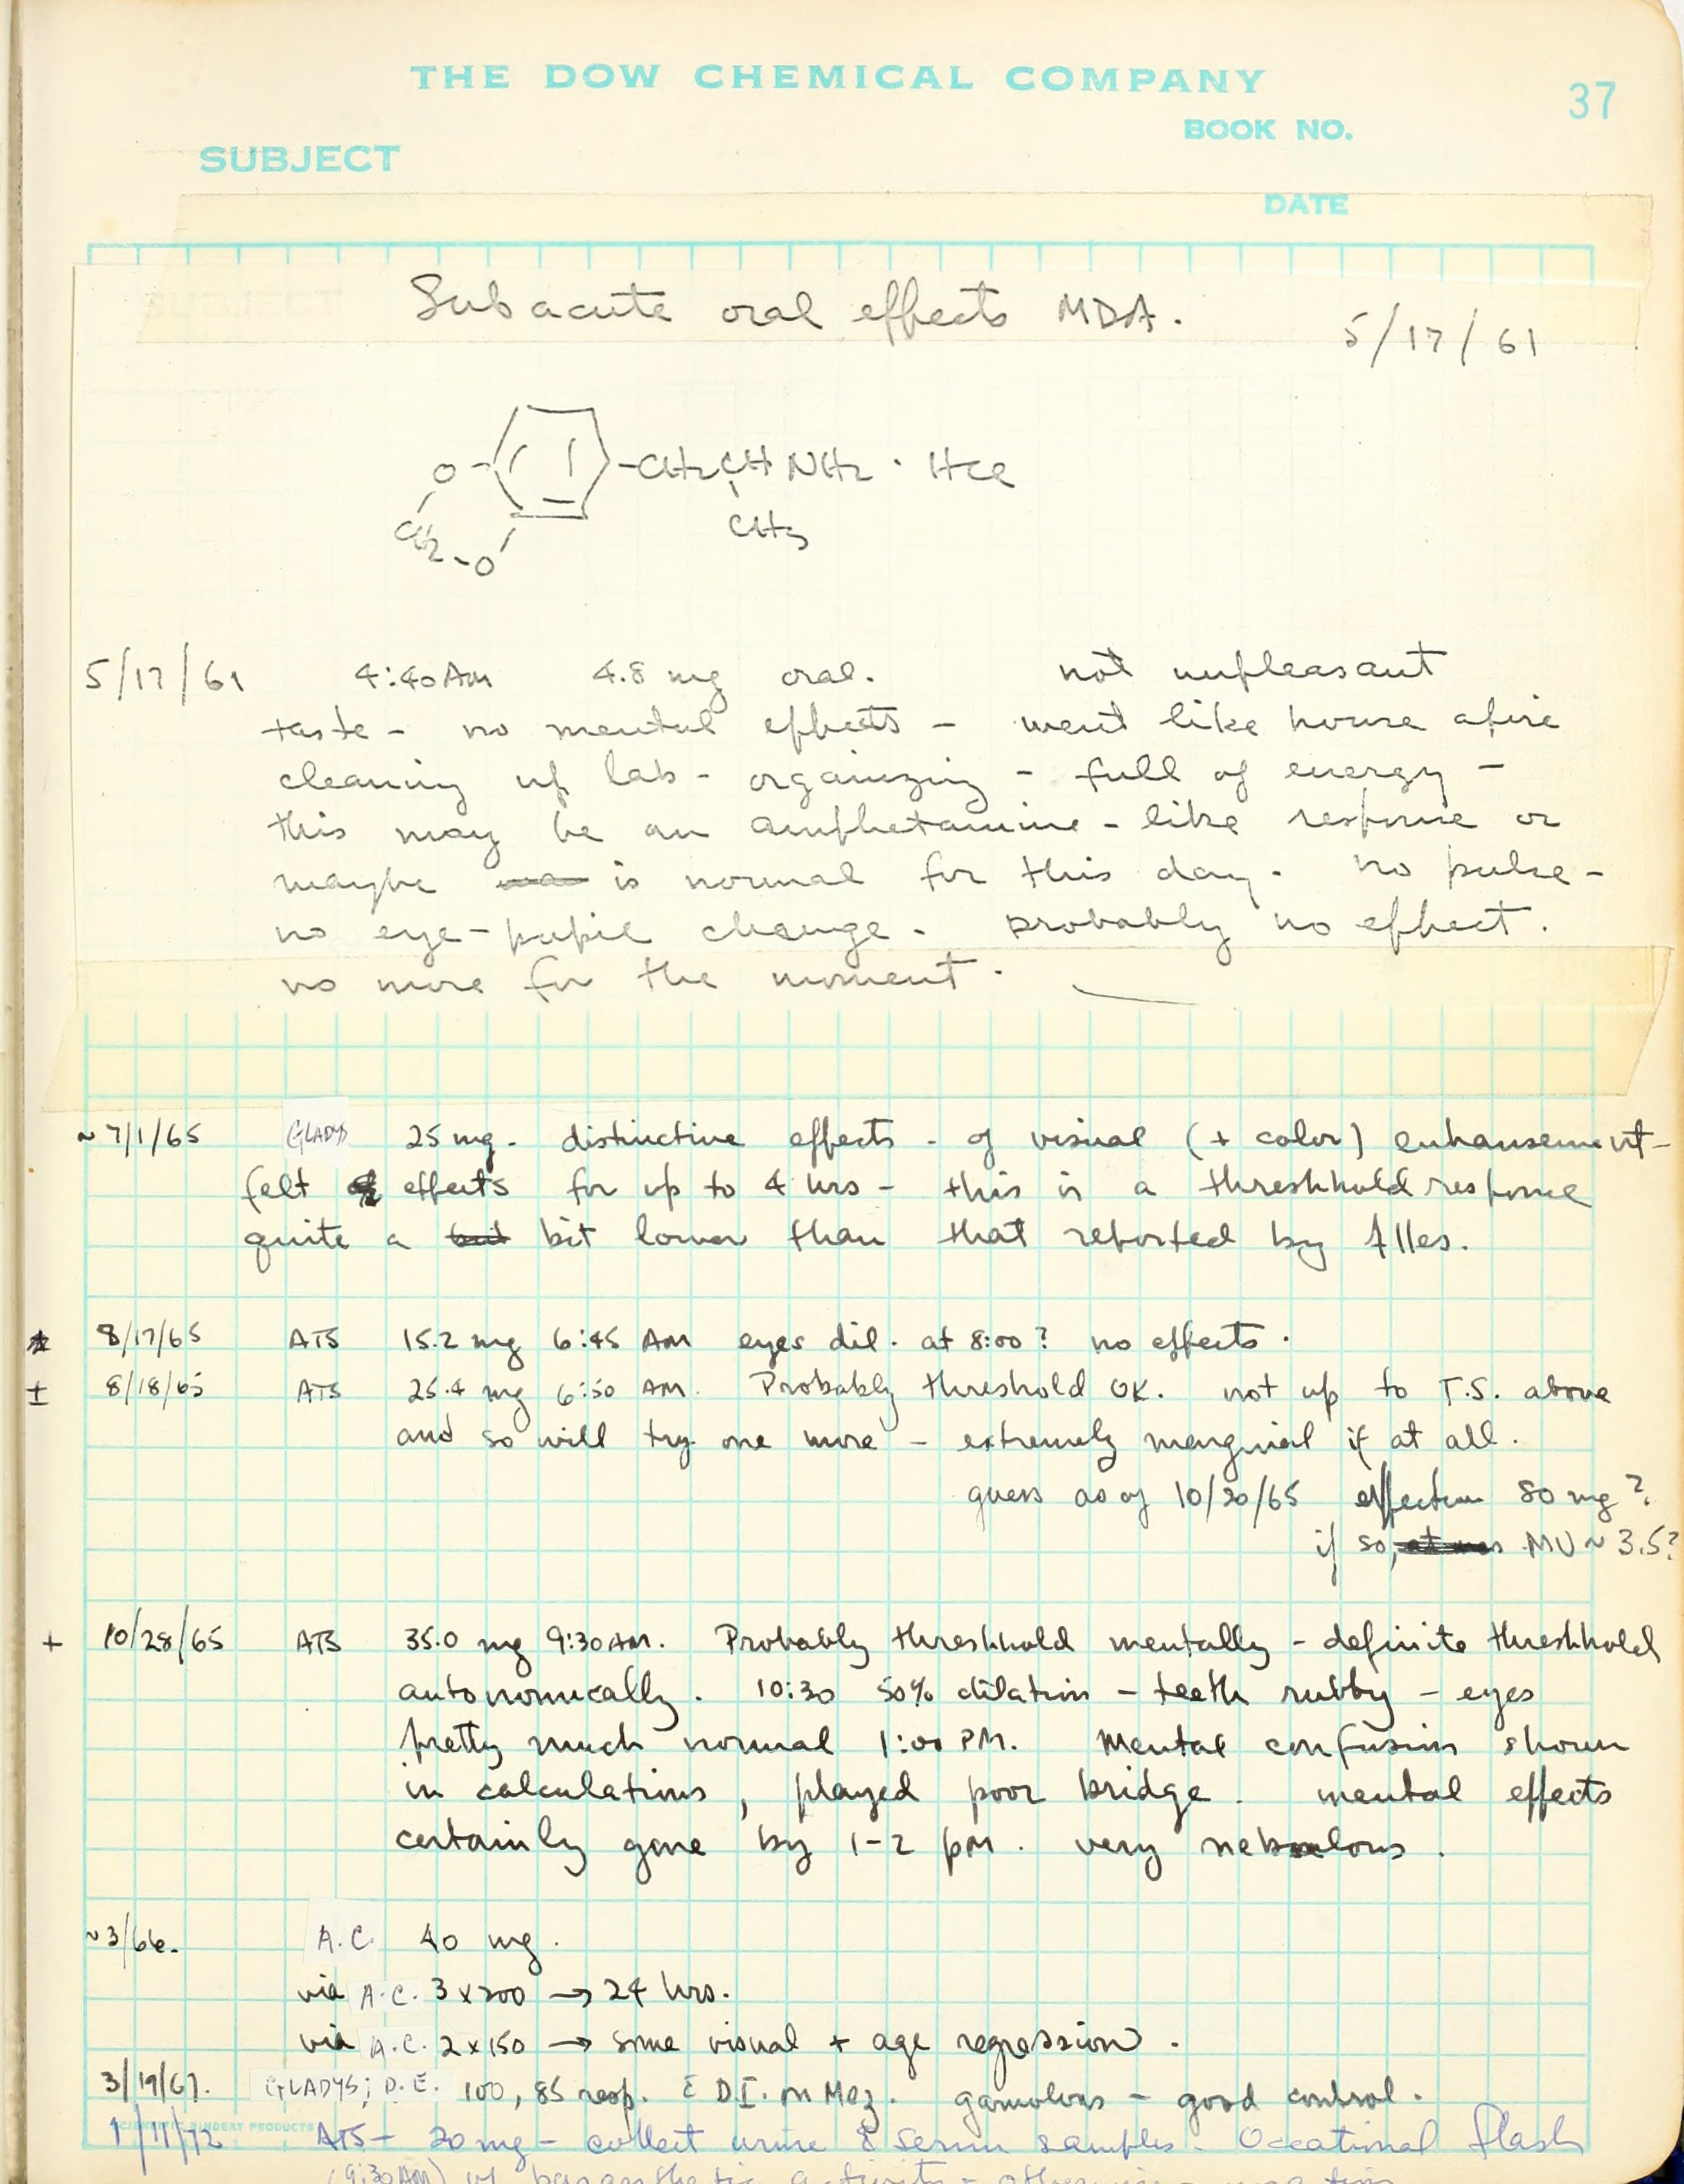 THE DOW CHEMICAL COMPANY
37
BOOK NO.
SUBJECT
DATE
Subacute oral effects MDA.
5/17/61
O -CH2CHNH2 · HCl
CH3
CH2-O
5/17/61 4:40 AM 4.8 mg oral. not unpleasant
taste - no mental effects - went like house afire
cleaning up lab - organizing - full of energy -
this may be an amphetamine-like response or
maybe is normal for this day. no pulse -
no eye-pupil change. probably no effect.
no more for the moment.
~7/1/65 GLADYS 25 mg. distinctive effects - of visual (+ color) enhansement -
felt effects for up to 4 hrs - this is a threshhold response
quite a bit lower than that reported by Alles.
8/17/65 ATS 15.2 mg 6:45 AM eyes dil. at 8:00? no effects.
± 8/18/65 ATS 25.4 mg 6:50 AM. Probably threshold OK. not up to T.S. above
and so will try one more - extremely marginal if at all.
guess as of 10/20/65 effective 80 mg?
if so, MU ~ 3.5?
+ 10/28/65 ATS 35.0 mg 9:30 AM. Probably threshhold mentally - definite threshhold
autonomically. 10:30 50% dilation - teeth rubby - eyes
pretty much normal 1:00 PM. Mental confusion shown
in calculations, played poor bridge. mental effects
certainly gone by 1-2 pM. very nebulous.
~3/66. A.C. 40 mg.
via A.C. 3 x 200 → 24 hrs.
via A.C. 2 x 150 → some visual + age regression.
3/19/67. GLADYS; D.E. 100, 85 resp. D.I. on Moz. - good control.
SCIENTIFIC BINDERY PRODUCTS
1/11/72 ATS - 20 mg - collect urine & serum samples. Occational flash
(9:30 AM) of